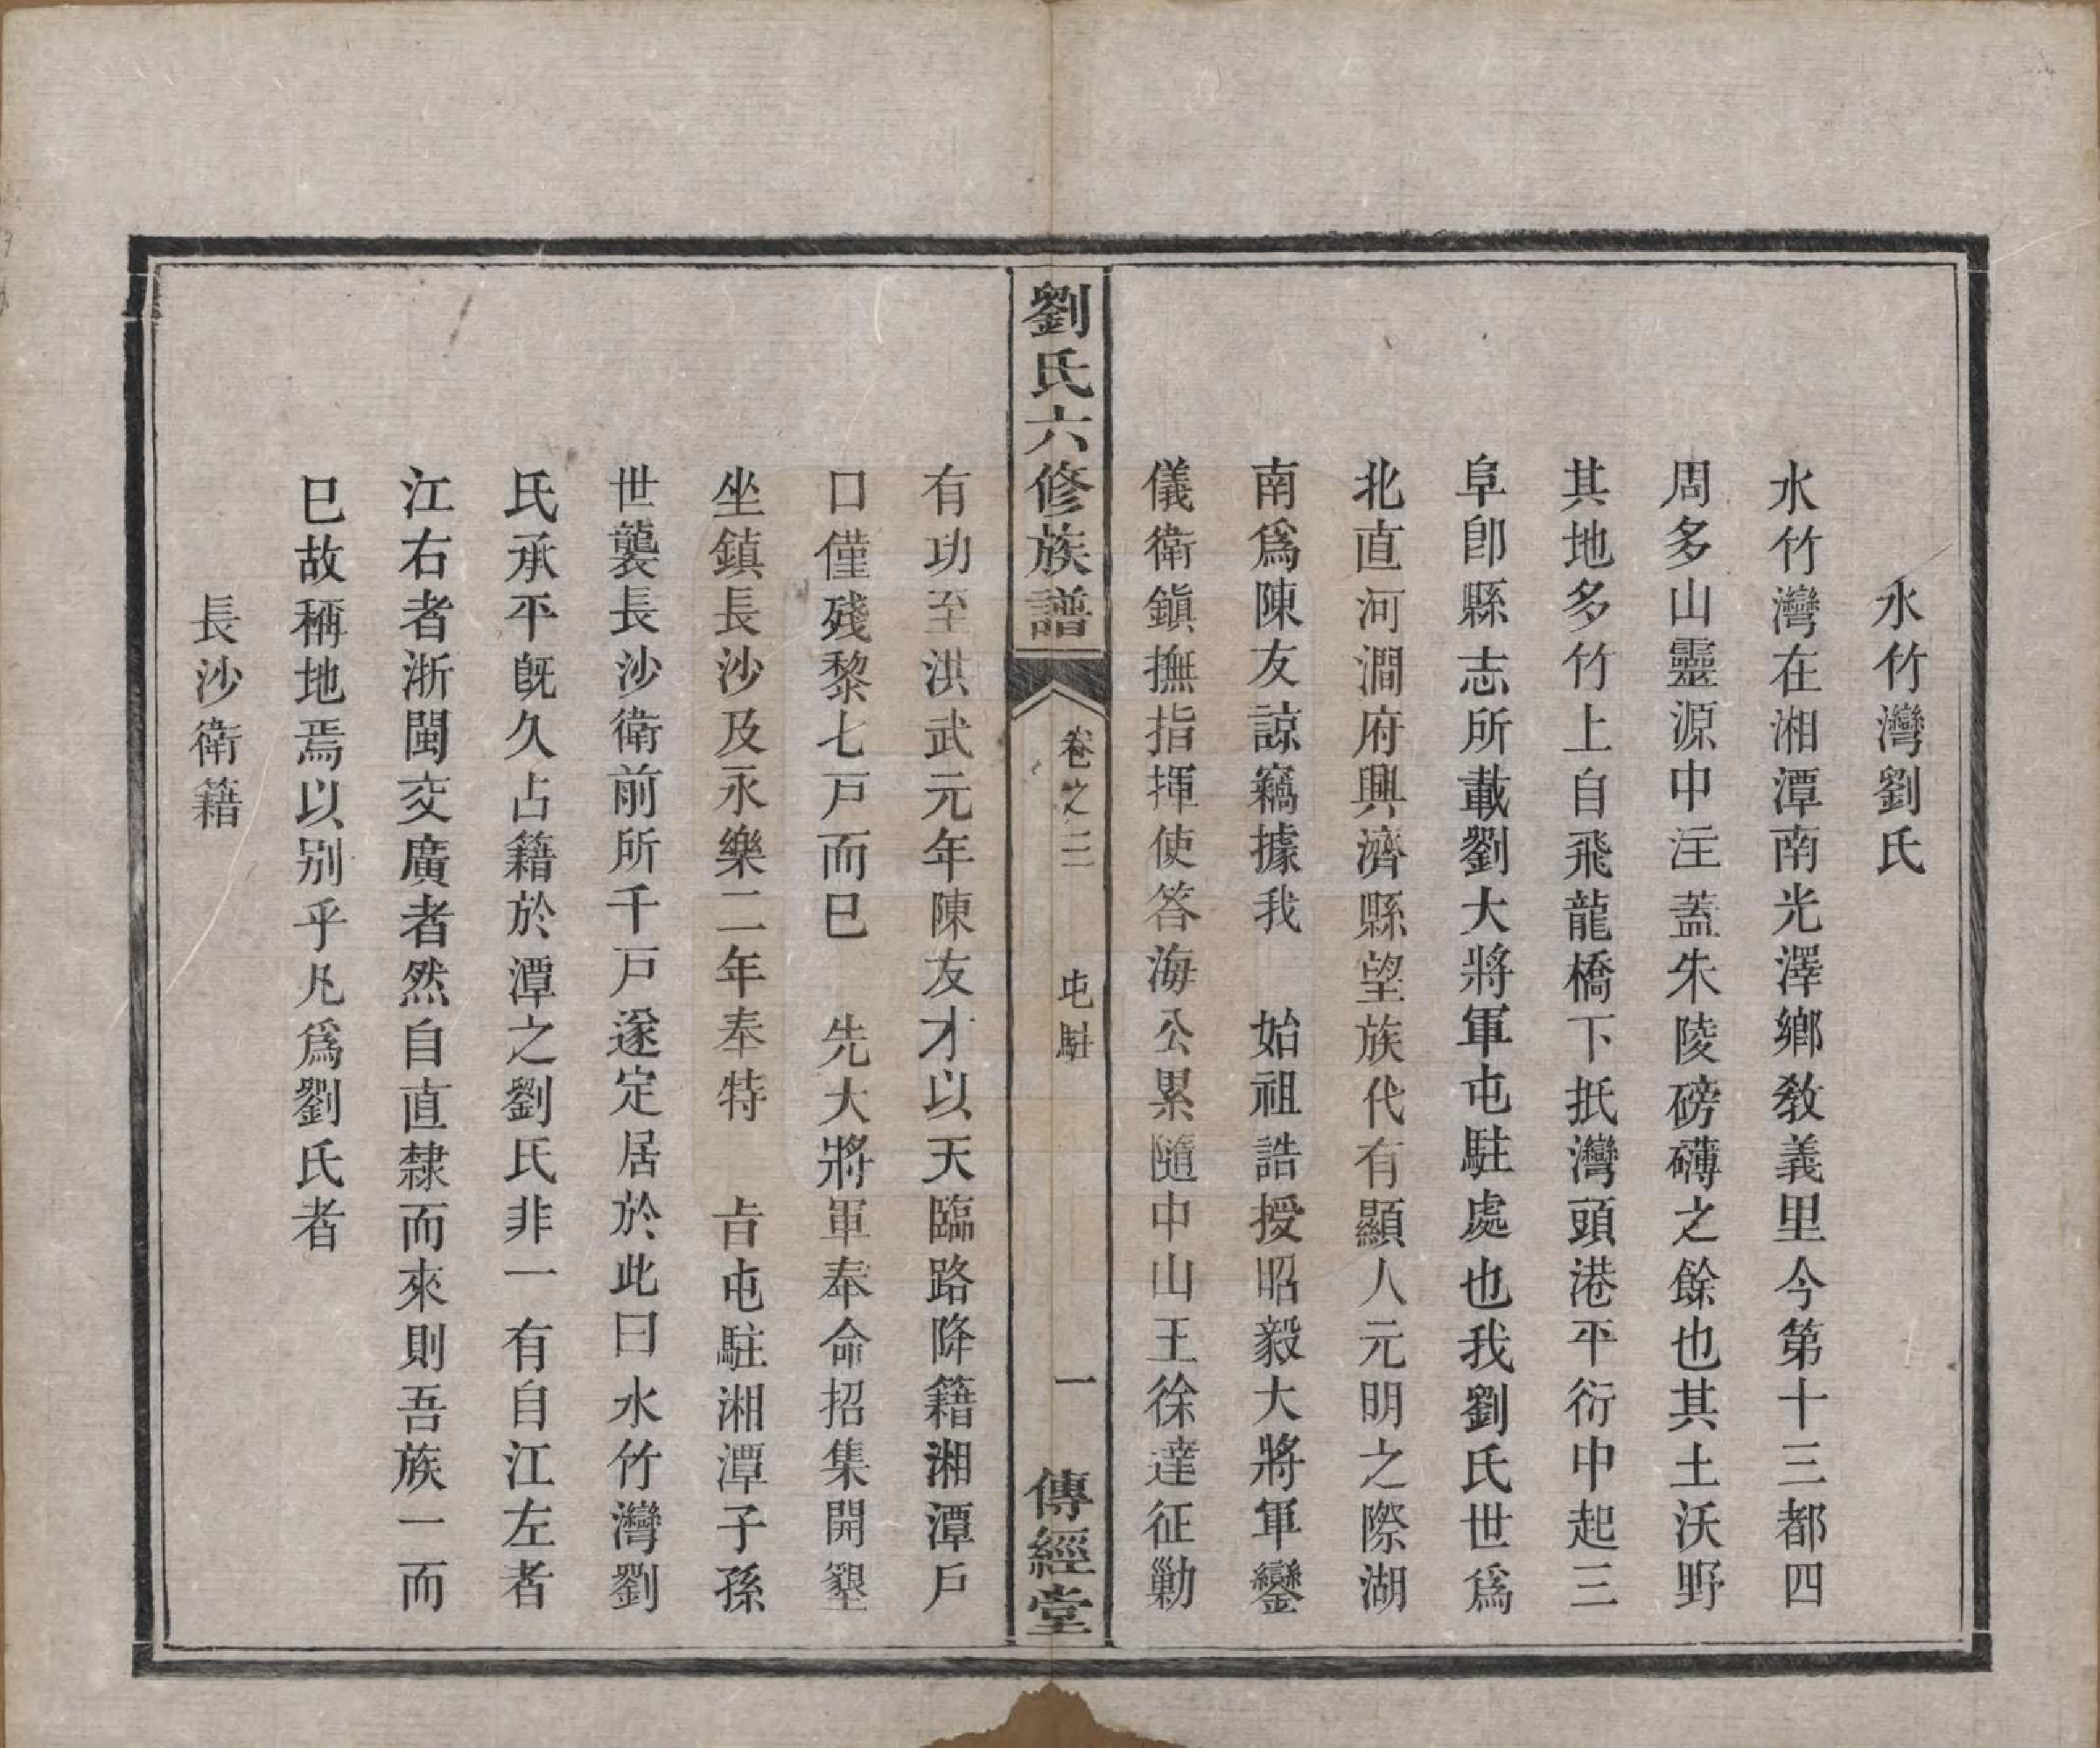 水竹灣劉氏
水竹灣在湘潭南光澤鄉敎義里今第十三都四
周多山靈源中注蓋朱陵磅礴之餘也其土沃野
其地多竹上自飛龍橋下抵灣頭港平衍中起三
阜卽縣志所載劉大將軍屯駐處也我劉氏世爲
北直河澗府興濟縣望族代有顯人元明之際湖
南爲陳友諒竊據我　始祖誥授昭毅大將軍鑾
儀衛鎭撫指揮使答海公累隨中山王徐達征勦
劉氏六修族譜　卷之三　屯駐　一　傳經堂
有功至洪武元年陳友才以天臨路降籍湘潭戶
口僅殘黎七戸而已　先大將軍奉命招集開墾
坐鎮長沙及永樂二年奉特　旨屯駐湘潭子孫
世襲長沙衛前所千戸遂定居於此曰水竹灣劉
氏承平旣久占籍於潭之劉氏非一有自江左者
江右者浙閩交廣者然自直隸而來則吾族一而
已故稱地焉以别乎凡爲劉氏者
長沙衛籍